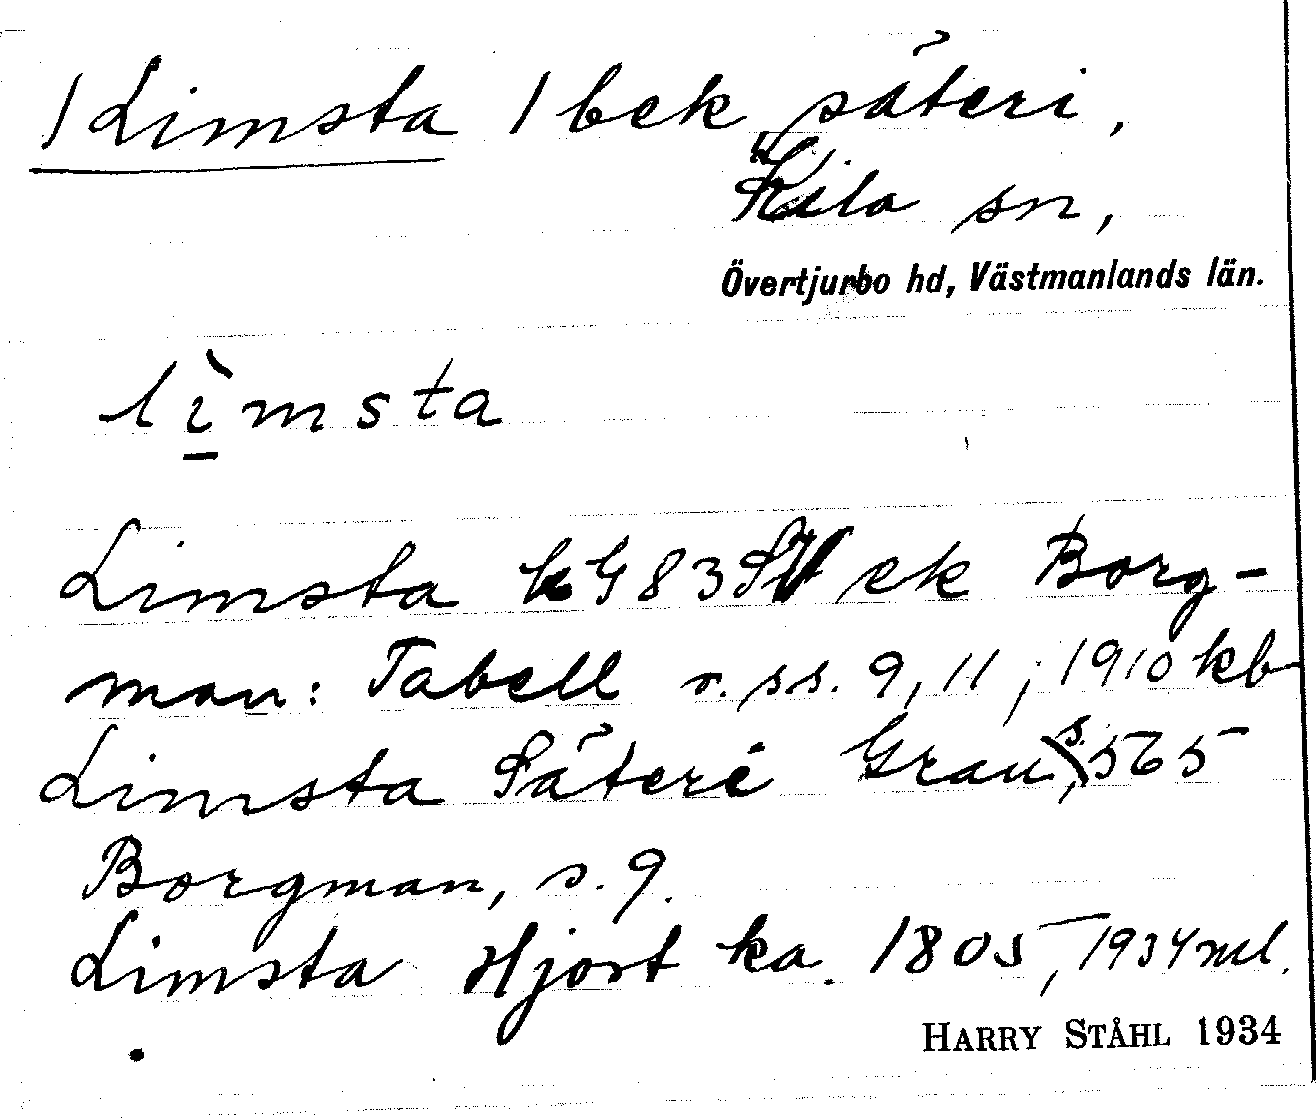 /Limsta / bek säteri,
Kila sn,
Övertjurbo hd, Västmanlands län.
lìmsta
Limsta G 83 ek Borg-
man: Tabell r. ss. 9, 11, 1910 kb
Limsta Säteri Grau, s. 565
Borgman, s. 9.
Limsta Hjort ka. 1805, 1934 ml.
HARRY STÅHL 1934